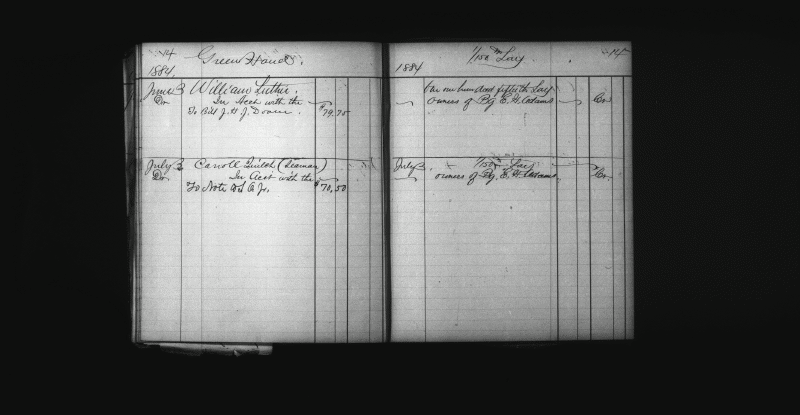 14
Green Hand.
1884.
June 3 William Luther.
Dr In Acct with the
To Bill J. H. J. Doane. $79.75
July 3 Carroll (Seaman)
Dr In Acct with the
To Note $70.50
1/150th Lay
1884
One hundred fiftieth Lay
Owners of Bg E. H. Adams Cr
July 3. 1/150th Lay
owners of Bg. E. H. Adams. Cr.